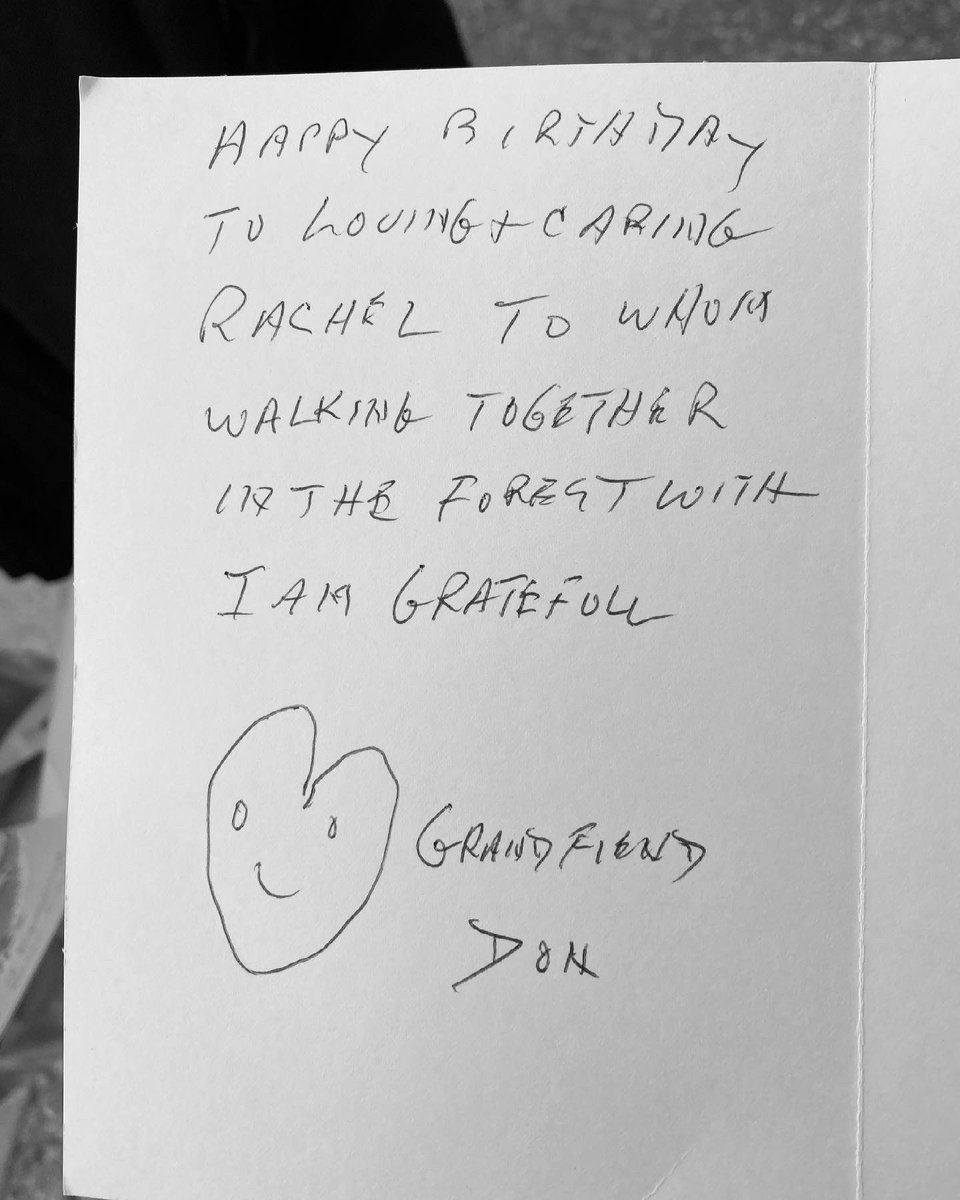 HAPPY BIRTHDAY
TO LOVING + CARING
RACHEL TO WHOM
WALKING TOGETHER
IN THE FOREST WITH
I AM GRATEFULL
GRANDFIEND
DON